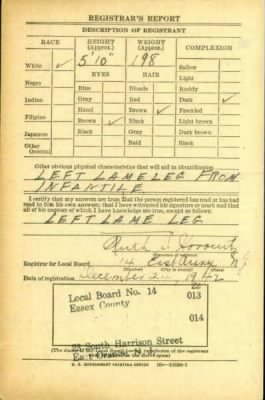 REGISTRAR'S REPORT
DESCRIPTION OF REGISTRANT
RACE HEIGHT (Approx.) WEIGHT (Approx.) COMPLEXION
White ✓ 5'10" 198 Sallow
EYES HAIR Light
Negro Blue Blonde Ruddy
Indian Gray Red Dark ✓
Hazel Brown ✓ Freckled
Filipino Brown ✓ Black Light brown
Japanese Black Gray Dark brown
Other Oriental Bald Black
Other obvious physical characteristics that will aid in identification
LEFT LAME LEG FROM
INFANTILE
I certify that my answers are true; that the person registered has read or has had
read to him his own answers; that I have witnessed his signature or mark and that
all of his answers of which I have knowledge are true, except as follows:
LEFT LAME LEG
Ruth
(Signature of registrar)
Registrar for Local Board 14 East Orange N.J.
Date of registration December 1942
Local Board No. 14 22
Essex County 013
014
33 South Harrison Street
East Orange, N. J.
(The stamp of the Local Board of the registrant
U. S. GOVERNMENT PRINTING OFFICE